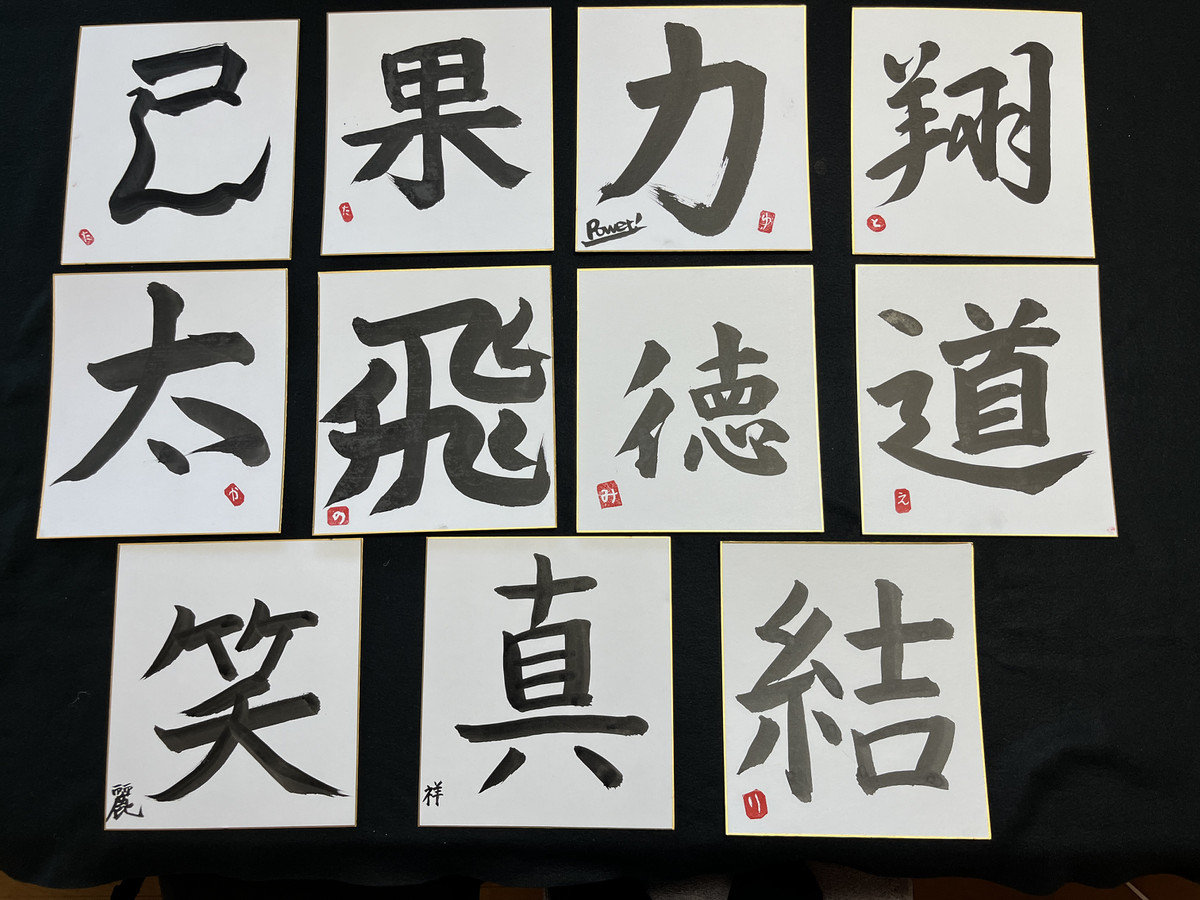 己
た
果
た
力
Power!
翔
と
太
か
飛
の
徳
み
道
え
笑
麗
真
祥
結
り